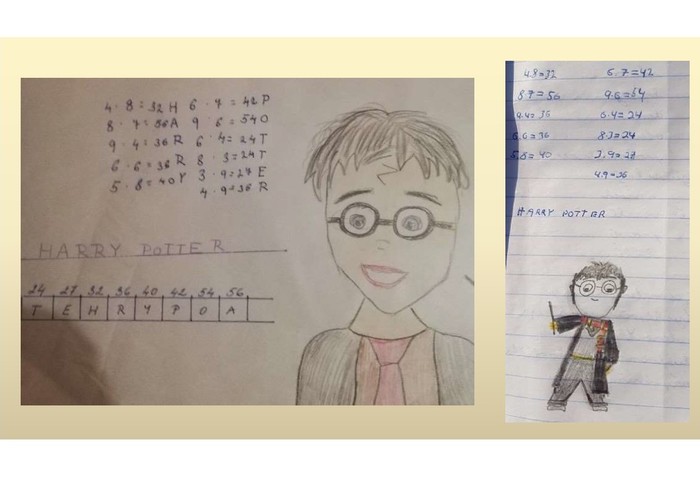 4 · 8 = 32 H 6 · 7 = 42 P
8 · 7 = 56 A 9 · 6 = 54 O
9 · 4 = 36 R 6 · 4 = 24 T
6 · 6 = 36 R 8 · 3 = 24 T
5 · 8 = 40 Y 3 · 9 = 27 E
4 · 9 = 36 R
HARRY POTTER
24 27 32 36 40 42 54 56
T E H R Y P O A
4.8=32 6.7=42
8.7=56 9.6=54
9.4=36 6.4=24
6.6=36 8.3=24
5.8=40 3.9=27
4.9=36
HARRY POTTER